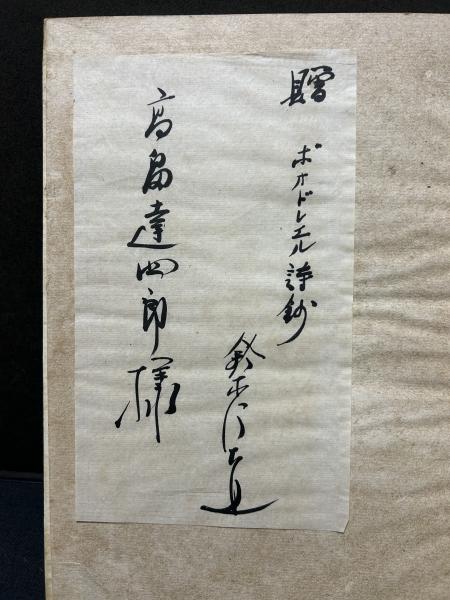 贈
ボオドレエル詩鈔
鈴木信太郎
髙畠達四郎様